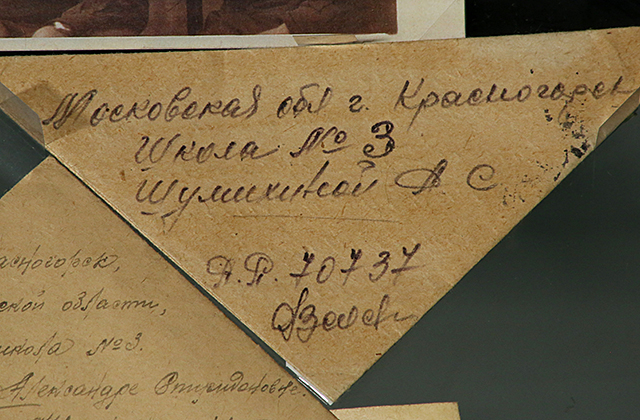 Московская обл г. Красногорск
Школа № 3
Шумихиной А С
П.П. 70737
асногорск,
ской области,
школа №3.
Александре Спиридоновне.